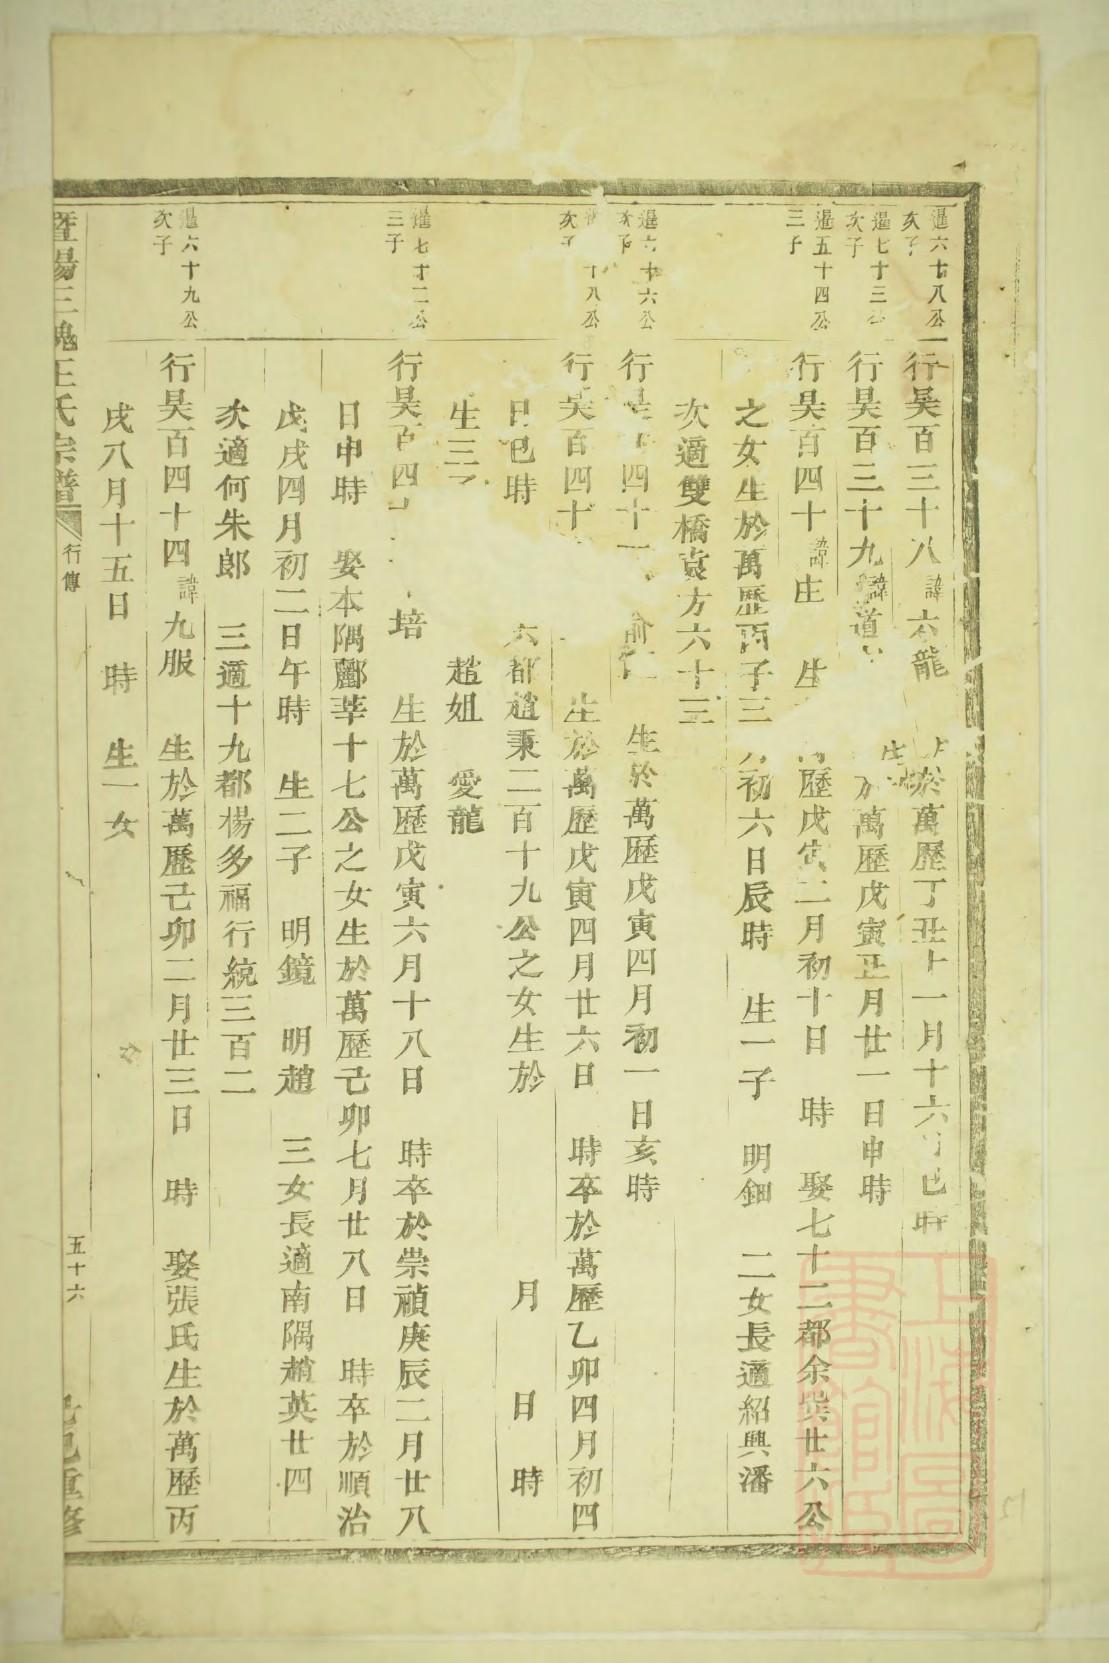 暹六十八公
次子
行昊百三十八 諱 六龍 於萬歷丁丑十一月十六日巳時
暹七十三公
次子
行昊百三十九 諱 道 生於萬歷戊寅正月廿一日申時
暹五十四公
三子
行昊百四十 諱 庄 生 萬歷戊寅二月初十日 時 娶七十二都余 廿六公
之女生於萬歷丙子三月初六日辰時 生一子 明鈿 二女長適紹興潘
次適雙橋袁方六十三
暹六十六公
次子
行昊百四十一 生於萬歷戊寅四月初一日亥時
十八公
次子
行昊百四十 生於萬歷戊寅四月廿六日 時卒於萬歷乙卯四月初四
日巳時 六都趙秉二百十九公之女生於 月 日 時
生三 趙姐 愛龍
暹七十二公
三子
行昊百四十 培 生於萬歷戊寅六月十八日 時卒於崇禎庚辰二月廿八
日申時 娶本隅酈莘十七公之女生於萬歷己卯七月廿八日 時卒於順治
戊戌四月初二日午時 生二子 明鏡 明趙 三女長適南隅趙英廿四
次適何朱郎 三適十九都楊多福行統三百二
暹六十九公
次子
行昊百四十四 諱 九服 生於萬歷己卯二月廿三日 時 娶張氏生於萬歷丙
戌八月十五日 時 生一女
暨陽王氏宗譜 行傳 五十六 重修
上海圖書館藏